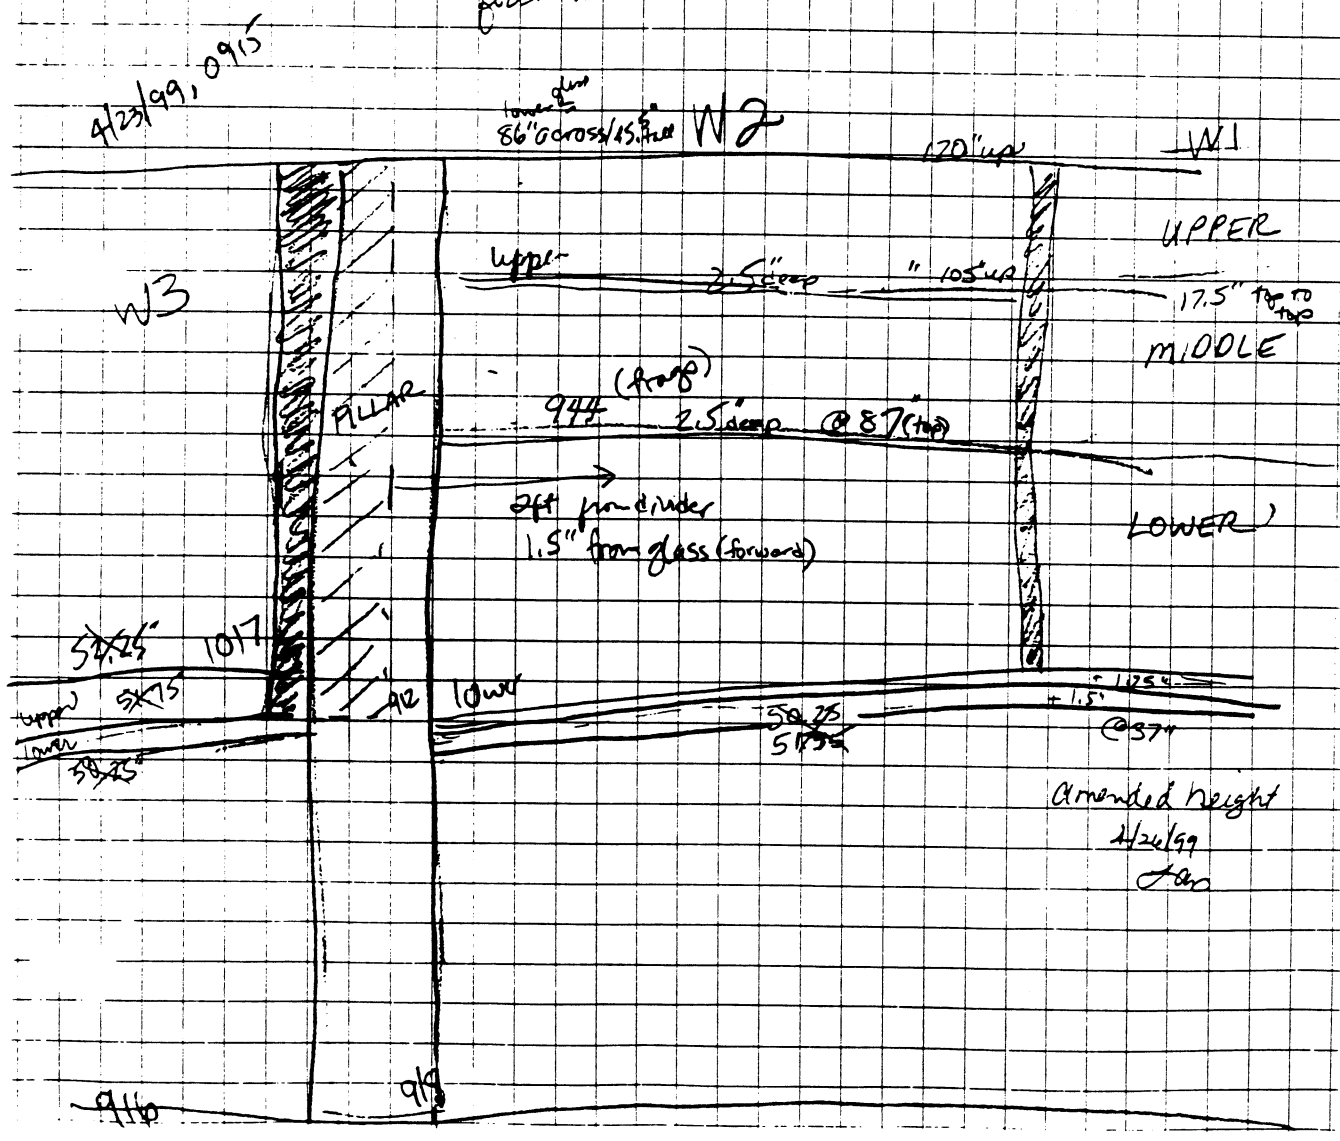 4/23/99, 0915
lower glass
86" across/45.5" tall
W2
120" up
W1
UPPER
upper
2.5" deep
" 105" up
17.5" top to top
W3
MIDDLE
(frags)
944
2.5" deep
@ 87" (top)
PILLAR
2ft from divider
1.5" from glass (forward)
LOWER
52.25"
1017
51.75
upper
lower
50.25"
912
lower
50.25
+ 1.25"
+ 1.5"
@37"
amended height
4/26/99
916
918